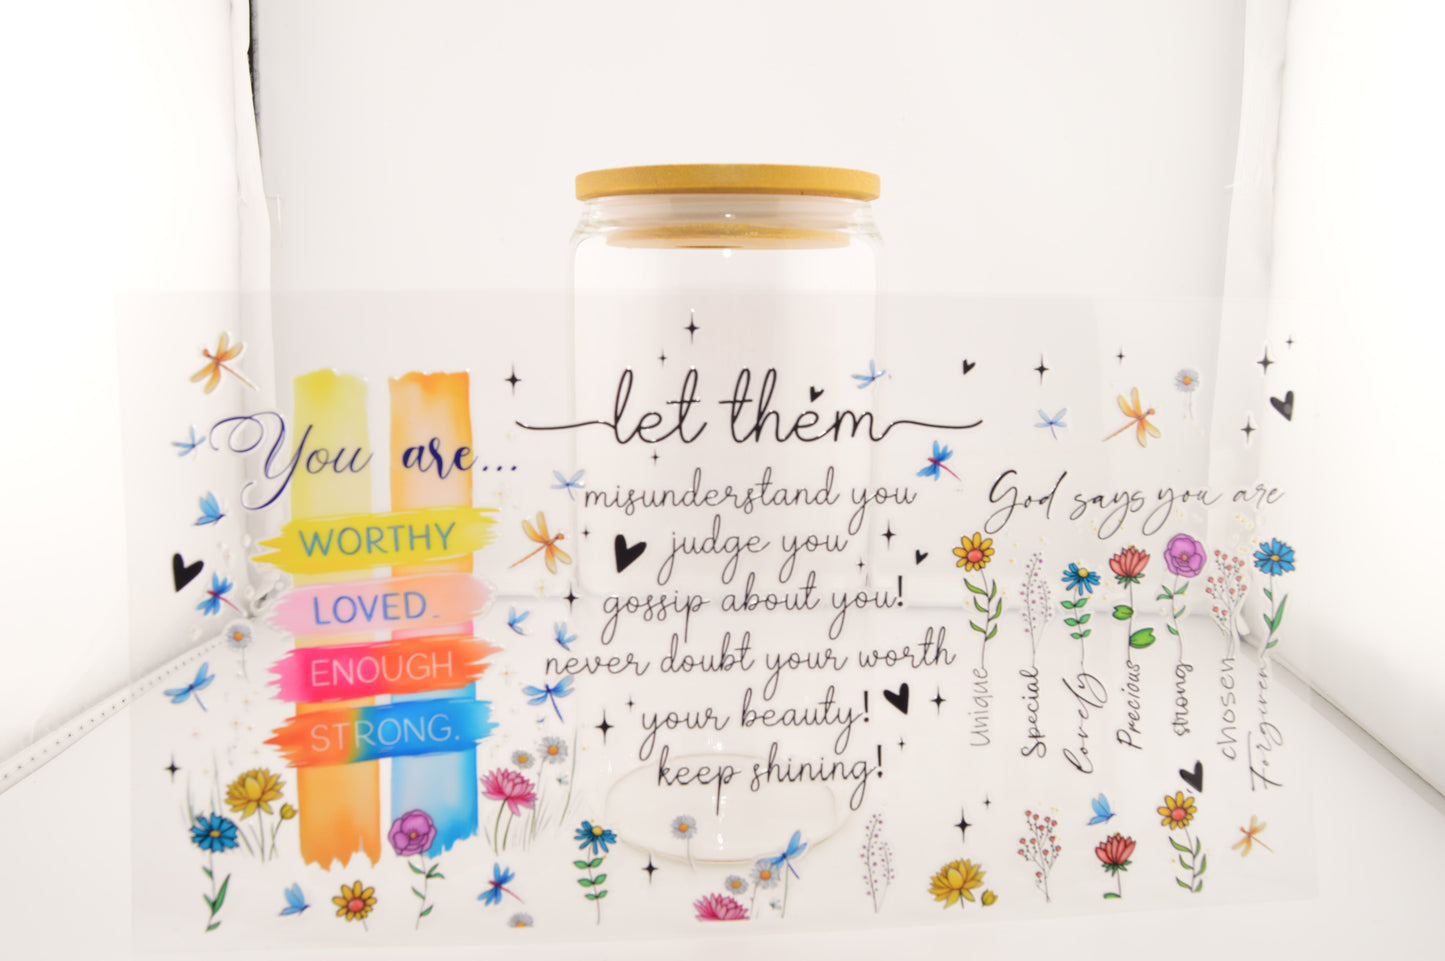 You are...
WORTHY
LOVED.
ENOUGH
STRONG.
let them
misunderstand you
judge you
gossip about you!
never doubt your worth
your beauty!
keep shining!
God says you are
Unique
Special
lovely
Precious
strong
chosen
Forgiven